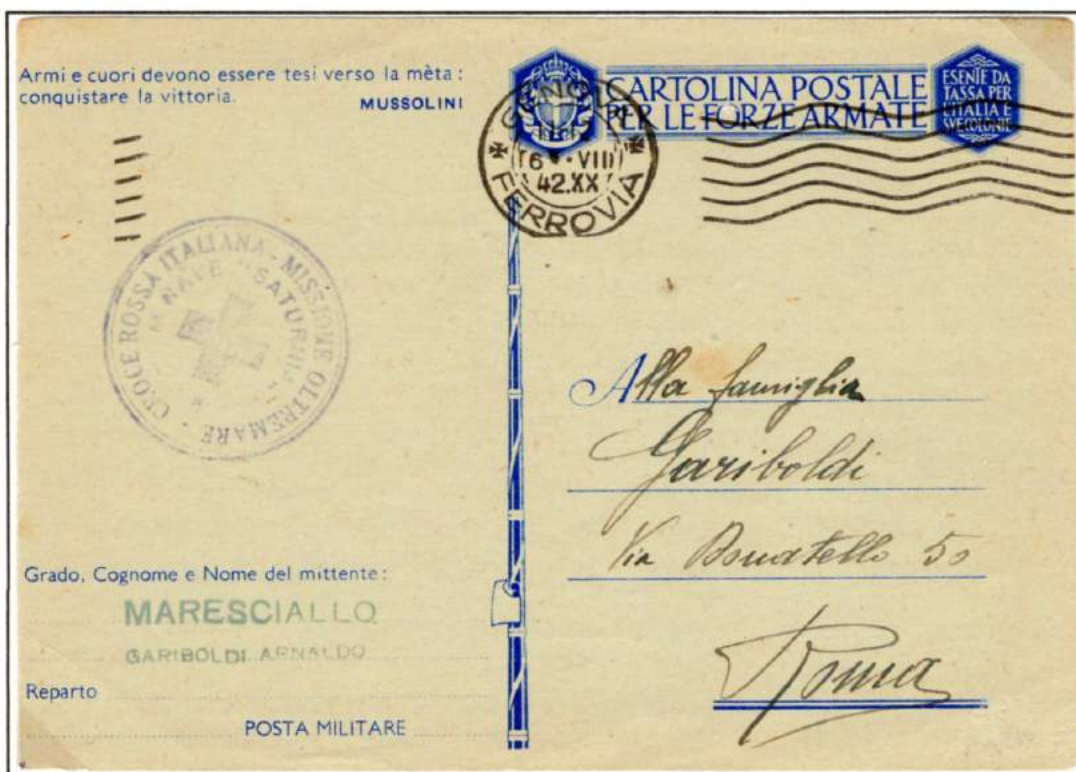 Armi e cuori devono essere tesi verso la mèta :
conquistare la vittoria.
MUSSOLINI
CARTOLINA POSTALE
PER LE FORZE ARMATE
ESENTE DA
TASSA PER
L'ITALIA E
SUE COLONIE
GENOVA
6 · VIII
42.XX
FERROVIA
CROCE ROSSA ITALIANA - MISSIONE OLTREMARE -
NAVE "SATURNIA"
Alla famiglia
Gariboldi
Via Donatello 50
Roma
Grado, Cognome e Nome del mittente :
MARESCIALLO
GARIBOLDI ARNALDO
Reparto
POSTA MILITARE